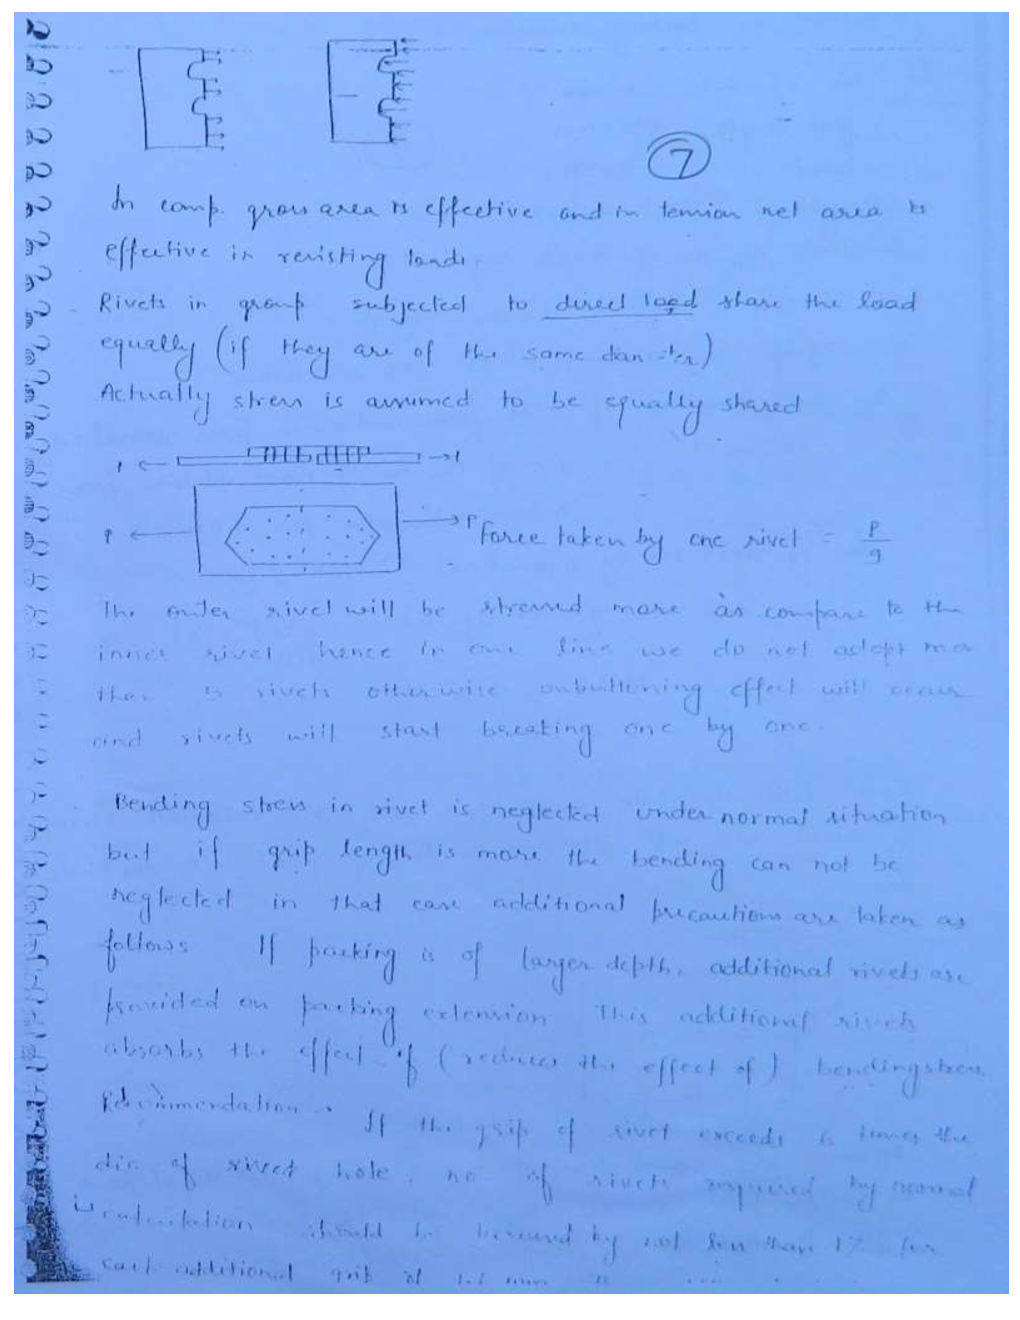 7
In comp. gross area is effective and in tension net area is
effective in resisting loads.
Rivets in group subjected to direct load share the load
equally (if they are of the same diameter)
Actually stress is assumed to be equally shared
P
P Force taken by one rivet = P/9
The outer rivet will be stressed more as compare to the
inner rivet hence in one line we do not adopt mo
than 5 rivets otherwise unbuttening effect will occur
and rivets will start breaking one by one.
Bending stress in rivet is neglected under normal situation
but if grip length is more the bending can not be
neglected in that case additional precautions are taken as
follows If packing is of larger depth, additional rivets are
provided on packing extension This additional rivets
absorbs the effect of (reduces the effect of) bending stress
Recommendation If the grip of rivet exceeds 6 times the
dia of rivet hole, no of rivets required by normal
calculation should be increased by not less than 1% for
each additional grip of 1.6 mm